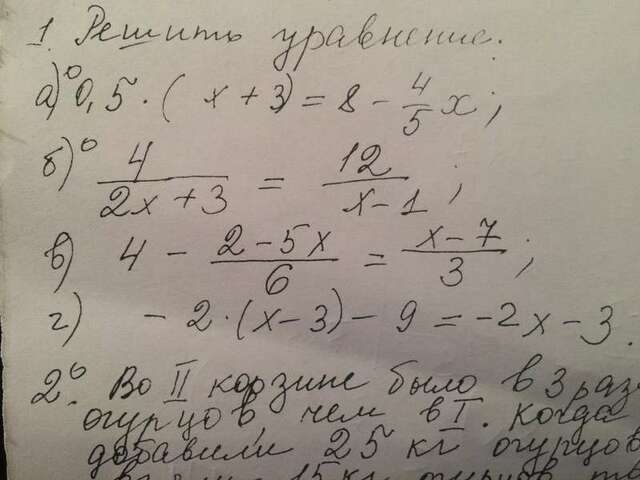 1. Решить уравнение.
а)° 0,5 · ( x + 3) = 8 - 4/5 x;
б)° 4/(2x + 3) = 12/(x - 1);
в) 4 - (2 - 5x)/6 = (x - 7)/3;
г) - 2 · (x - 3) - 9 = -2x - 3.
2°. Во II корзине было в 3 раз
огурцов, чем в I. Когда
добавили 25 кг огурцов
15 кг огурцов